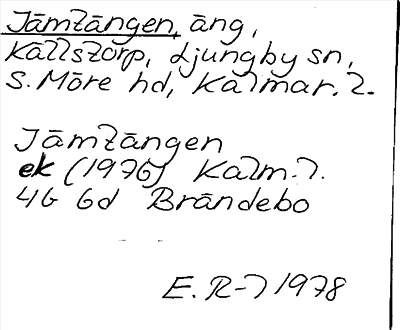 Jämtängen, äng,
Källstorp, Ljungby sn,
S. Möre hd, Kalmar. l.
Jämtängen
ek (1976) Kalm. l.
4G 6d Brändebo
E. R-l 1978